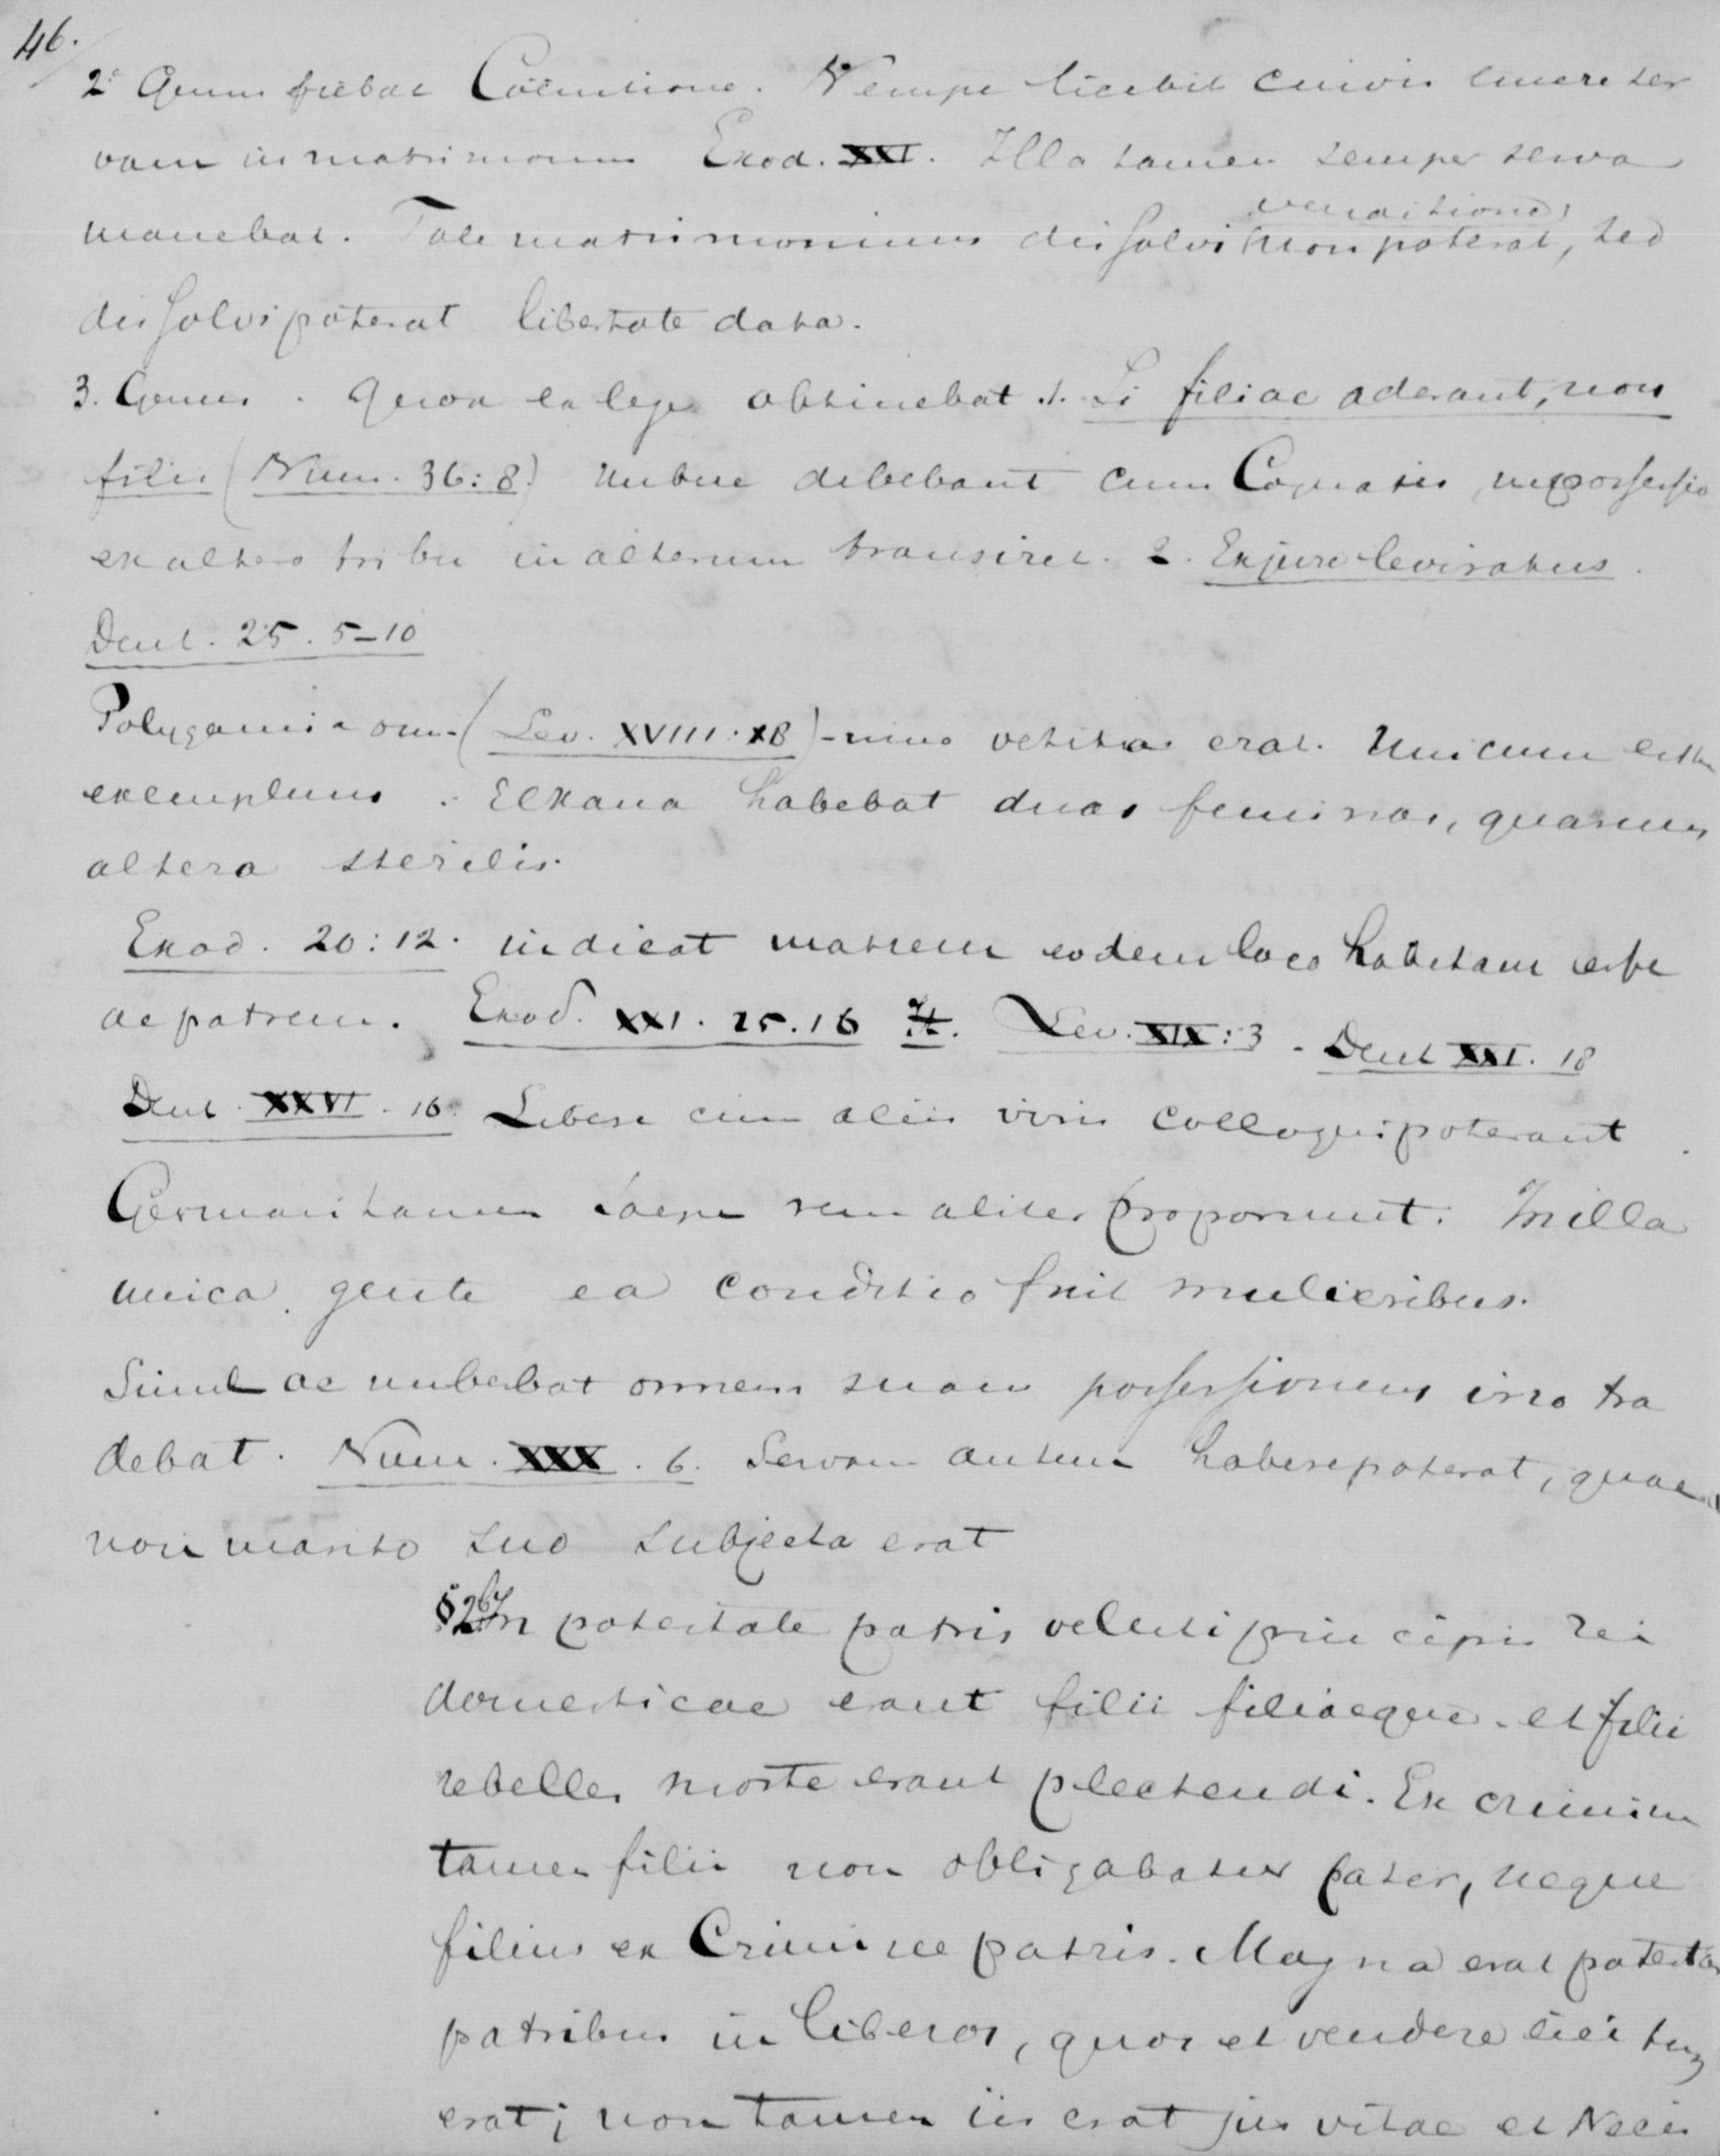 46.
2° Genus fiebat Coëmtione. Nempe licebit cuivis emere ser
vam in matrimonium Exod. XXI. Illa tamen semper serva
manebat. Tale matrimonium dissolvi venditione non poterat, sed
dissolvi poterat libertate data.
3. Genus. Quod ex lege obtinebat .1. Si filiae aderant, non
filii (Num. 36:8) nubere debebant cum Cognatis, ne possessio
ex altero tribu in alterum transiret. 2. Ex jure leviratus.
Deut. 25. 5-10
Polygamia om-(Lev. XVIII:18)-nino vetita erat. Unicum est
exemplum. Elkana habebat duas feminas, quarum
altera sterilis.
Exod. 20:12. indicat matrem eodem loco habitam esse
ac patrem. Exod. XXI. 15.16 It. Lev. XIX:3 - Deut XXI. 18
Deut. XXVI. 16. Libere cum aliis viris colloqui poterant.
Germani tamen saepe rem aliter proponunt. In illa
unica gente ea conditio fuit mulieribus.
Simul ac nubebat omnem suam possessionem viro tra
debat. Num. XXX. 6. Servam autem habere poterat, quae
non marito suo subjecta erat
§26 In potestate patris velut principis rei
domesticae erant filii filiaeque. et filii
rebelles morte erant plectendi. Ex crimine
tamen filii non obligabatur pater, neque
filius ex Crimine patris. Magna erat potestas
patribus in liberos, quos et vendere licitum
erat; non tamen iis erat jus vitae et Necis